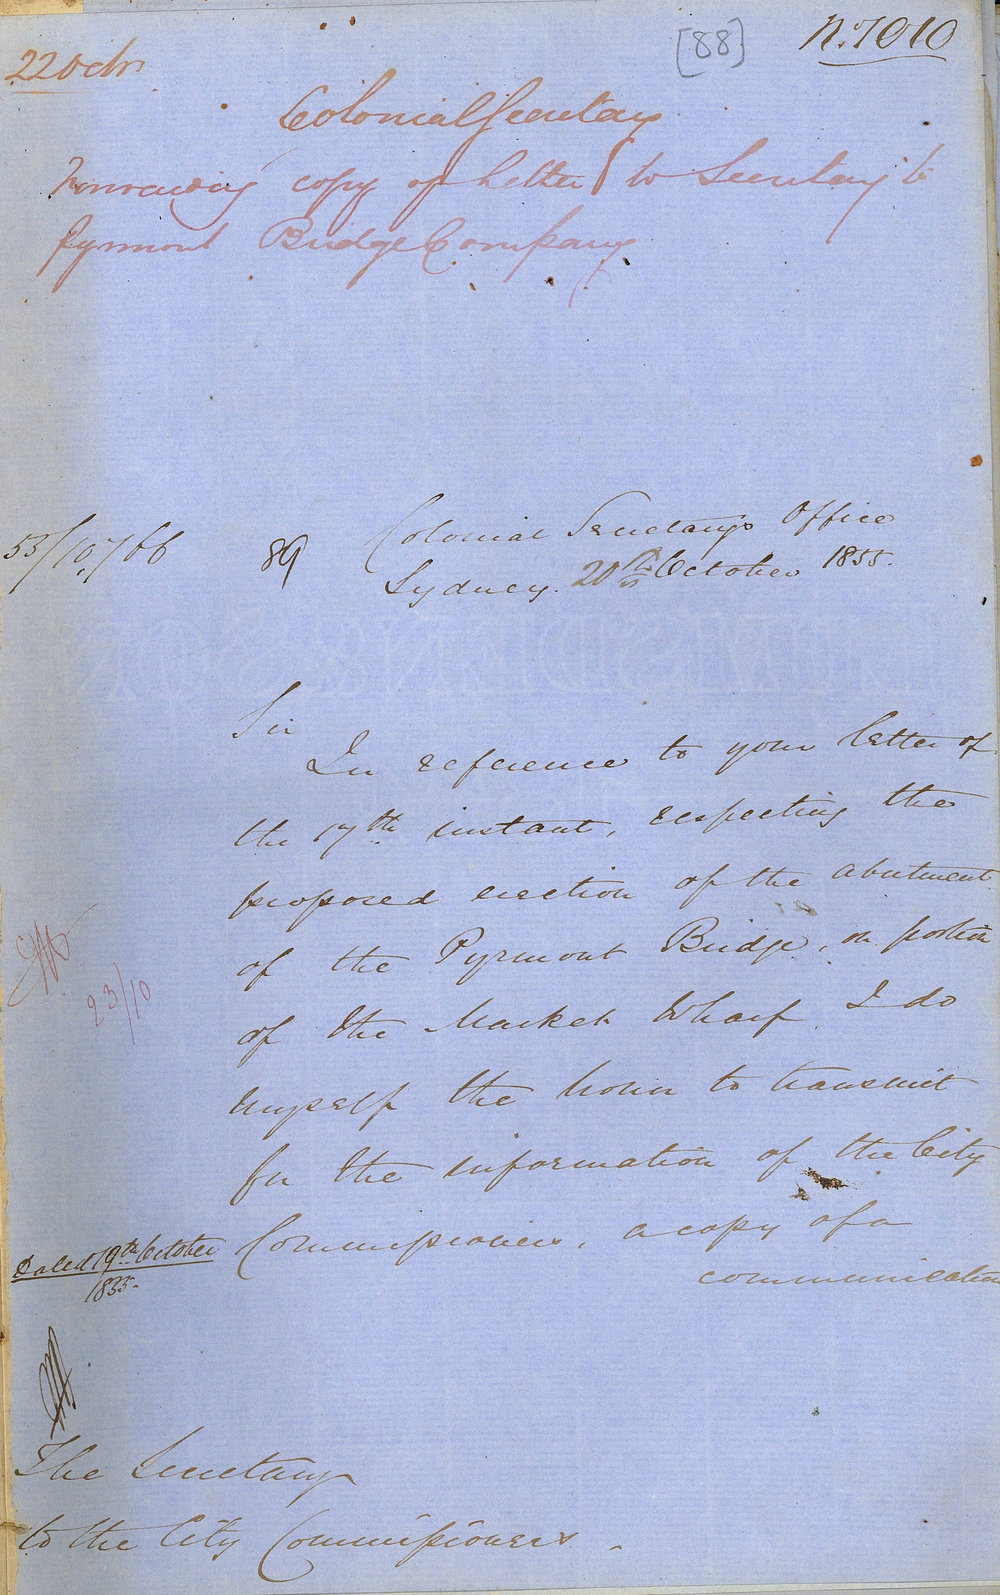 22 Octr
[88]
No. 1010
Colonial Secretary
Forwarding copy of letter to Secretary to
Pyrmont Bridge Company
55/10,766
89
Colonial Secretary's Office
Sydney. 20th October 1855.
Sir
In reference to your letter of
the 17th instant, respecting the
proposed erection of the abutment
of the Pyrmont Bridge, on portion
of the Market Wharf, I do
myself the honor to transmit
for the information of the City
Commissioners, a copy of a
communication
23/10
Dated 19th October
1855.
The Secretary
to the City Commissioners.